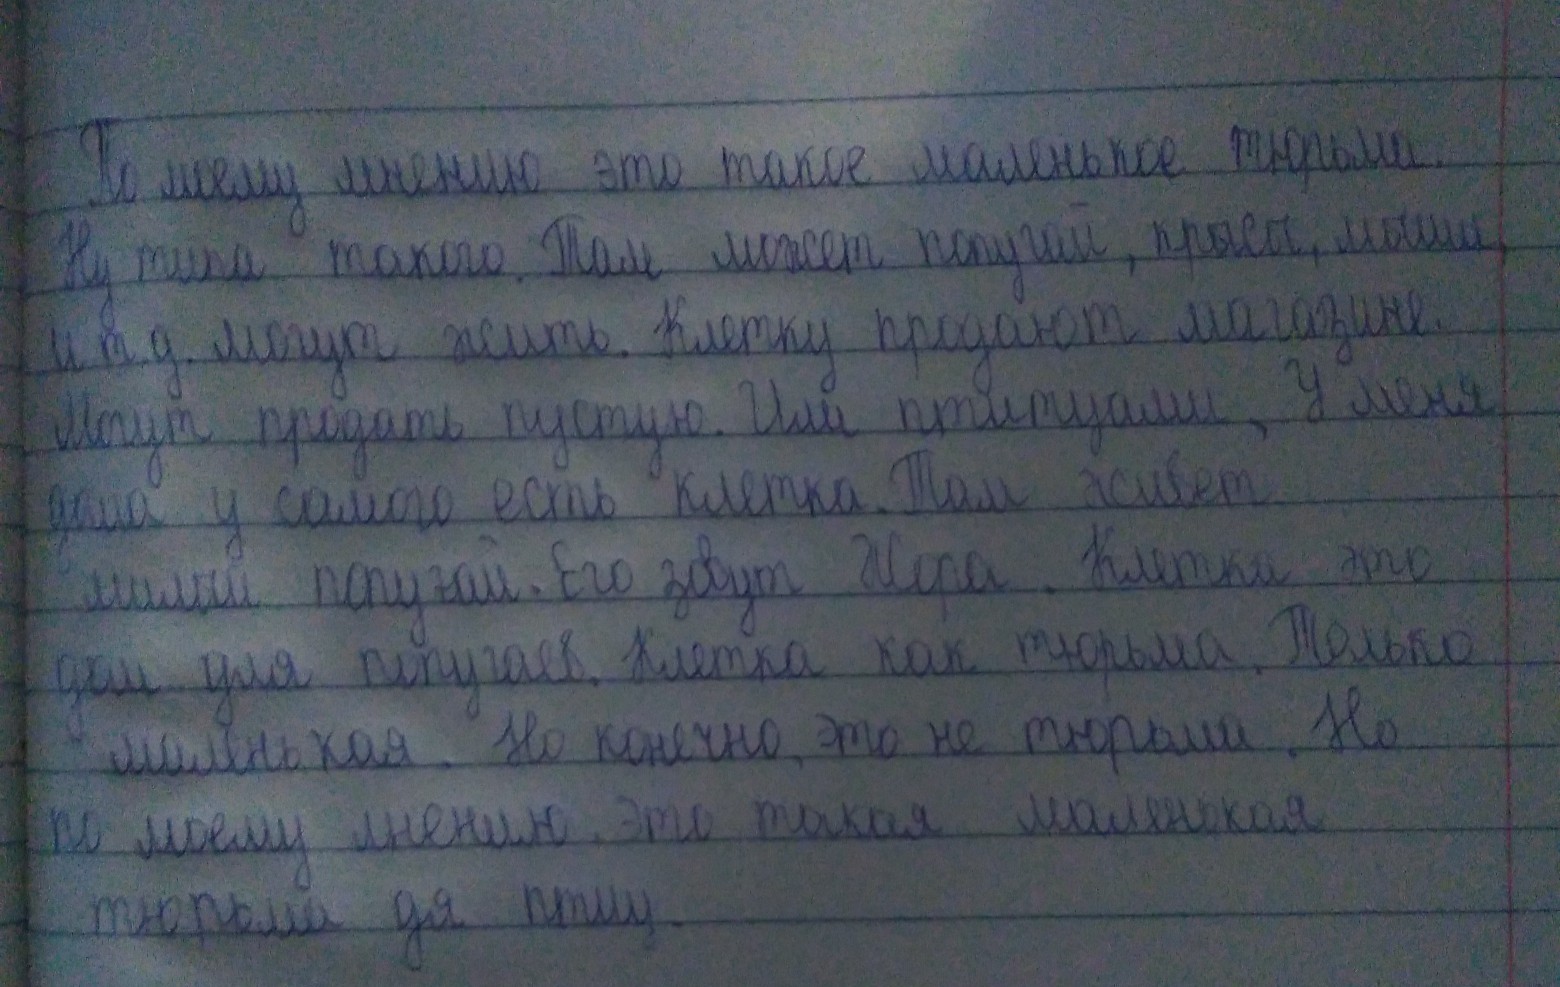 По моему мнению это такое маленькое тюрьма.
Ну типа такого. Там может попугай, крысы, мыши,
и т д. могут жить. Клетку продают магазине.
Могут продать пустую. Или птитцами, У меня
дома у самого есть клетка. Там живет
милый попугай. Его зовут Жора. Клетка это
дом для попугаев. Клетка как тюрьма. Только
маленькая. Но конечно, это не тюрьма. Но
по моему мнению это такая маленькая
тюрьма дя птиц.